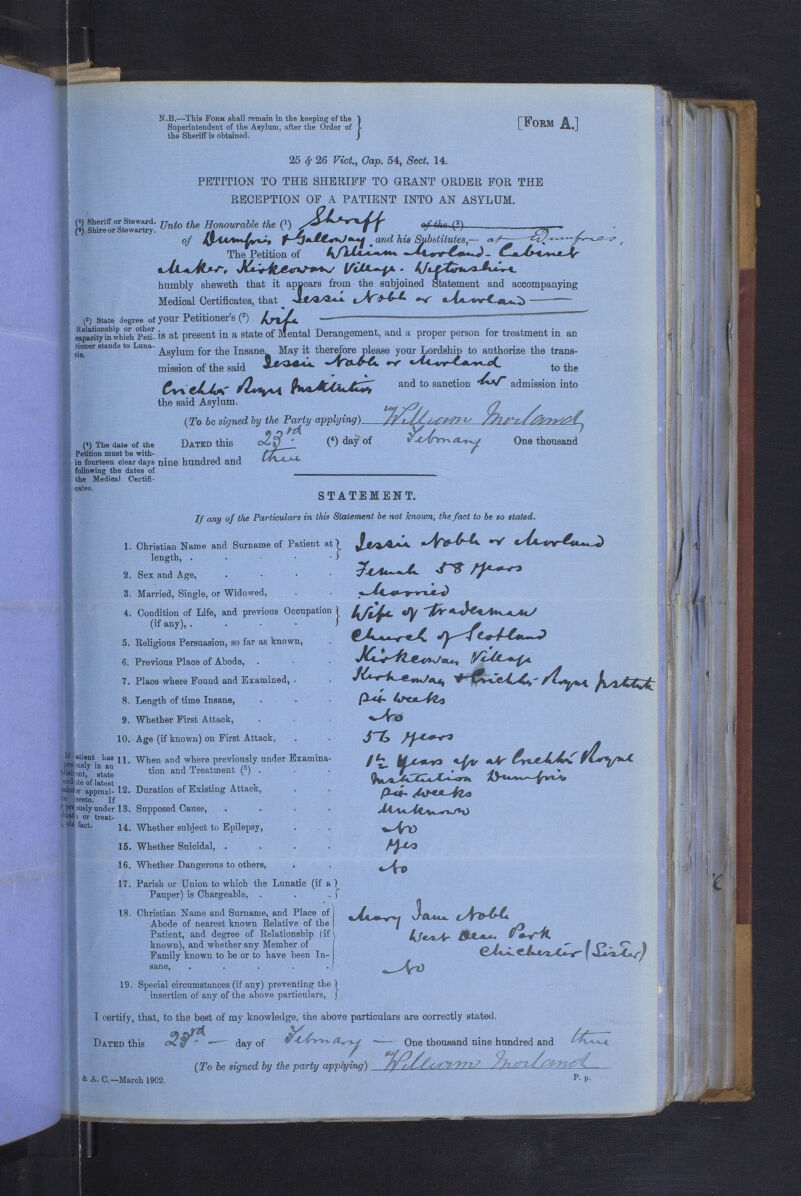 N.B.—This Form shall remain in the keeping of the
Superintendent of the Asylum, after the Order of
the Sheriff is obtained.
[Form A.]
25 & 26 Vict., Cap. 54, Sect. 14.
PETITION TO THE SHERIFF TO GRANT ORDER FOR THE
RECEPTION OF A PATIENT INTO AN ASYLUM.
(1) Sheriff or Steward.
(2) Shire or Stewartry.
Unto the Honourable the (1) Sheriff of the (2)
of Dumfries & Galloway and his Substitutes,— at Dumfries,
The Petition of William Morland - Cabinet
Maker, Kirkcowan Village. Wigtonshire
humbly sheweth that it appears from the subjoined Statement and accompanying
Medical Certificates, that Jessie Noble or Morland
(3) State degree of
Relationship or other
capacity in which Peti-
tioner stands to Luna-
tic.
your Petitioner's (3) Wife
is at present in a state of Mental Derangement, and a proper person for treatment in an
Asylum for the Insane. May it therefore please your Lordship to authorize the trans-
mission of the said Jessie Noble or Morland to the
Crichton Royal Institution and to sanction her admission into
the said Asylum.
(To be signed by the Party applying) William Morland
(4) The date of the
Petition must be with-
in fourteen clear days
following the dates of
the Medical Certifi-
cates.
Dated this 23rd. (4) day of February One thousand
nine hundred and three
STATEMENT.
If any of the Particulars in this Statement be not known, the fact to be so stated.
1. Christian Name and Surname of Patient at
length, . . . . . Jessie Noble or Morland
2. Sex and Age, . . . . Female 58 Years
3. Married, Single, or Widowed, . . Married
4. Condition of Life, and previous Occupation
(if any), . . . . . Wife of tradesman
5. Religious Persuasion, so far as known, . Church of Scotland
6. Previous Place of Abode, . . . Kirkcowan Village
7. Place where Found and Examined, . . Kirkcowan & Crichton Royal Institute
8. Length of time Insane, . . . Six weeks
9. Whether First Attack, . . . No
10. Age (if known) on First Attack, . . 56 Years
If Patient has
previously in an
state
of latest
or approxi-
thereto. If
previously under
or treat-
fact.
11. When and where previously under Examina-
tion and Treatment (5) . . . 1½ Years ago at Crichton Royal
Institution Dumfries
12. Duration of Existing Attack, . . Six weeks
13. Supposed Cause, . . . . Unknown
14. Whether subject to Epilepsy, . . No
15. Whether Suicidal, . . . . Yes
16. Whether Dangerous to others, . . No
17. Parish or Union to which the Lunatic (if a
Pauper) is Chargeable, . . .
18. Christian Name and Surname, and Place of
Abode of nearest known Relative of the
Patient, and degree of Relationship (if
known), and whether any Member of
Family known to be or to have been In-
sane, . . . . . .
Mary Jane Noble
West Dean Park
Chichester (Sister)
No
19. Special circumstances (if any) preventing the
insertion of any of the above particulars,
I certify, that, to the best of my knowledge, the above particulars are correctly stated.
Dated this 23rd. — day of February — One thousand nine hundred and three
(To be signed by the party applying) William Morland
& A. C.—March 1902.
P. p.